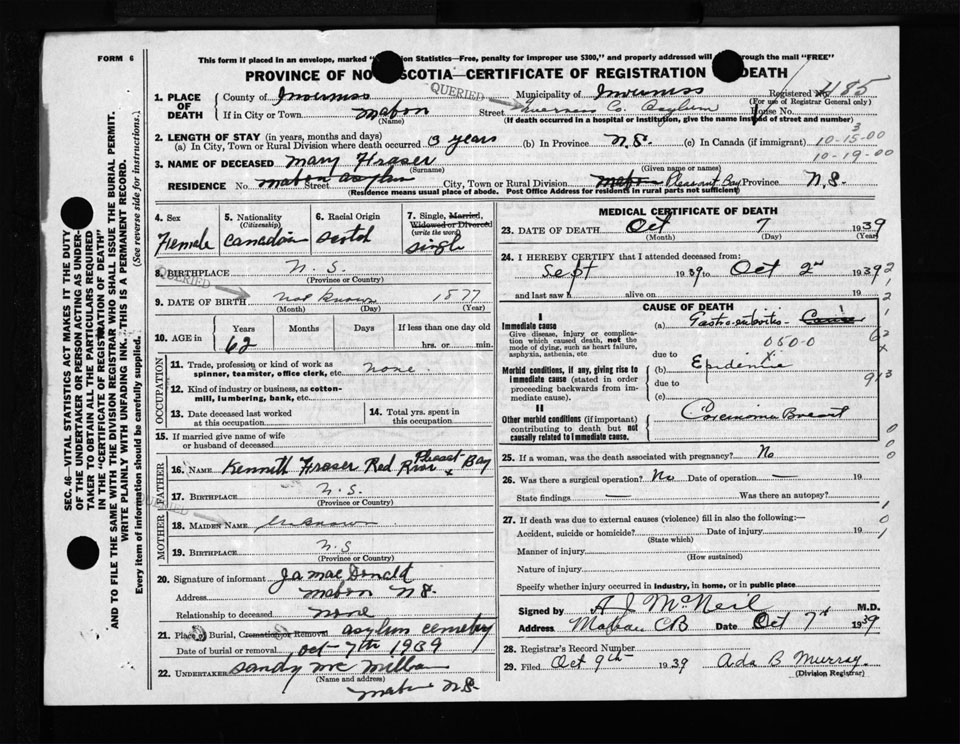 FORM 6
This form if placed in an envelope, marked "ion Statistics—Free, penalty for improper use $300," and properly addressed will rough the mail "FREE"
PROVINCE OF NO SCOTIA—CERTIFICATE OF REGISTRATION DEATH
1. PLACE OF DEATH
County of Inverness
QUERIED
Municipality of Inverness
Registered No. 4185
(For use of Registrar General only)
If in City or Town Mabou
(Name)
Street Inverness Co. Asylum
House No.
(If death occurred in a hospital or institution, give the name instead of street and number)
2. LENGTH OF STAY (in years, months and days)
(a) In City, Town or Rural Division where death occurred 3 years
(b) In Province N.S.
(c) In Canada (if immigrant)
3
10-15-00
10-19-00
3. NAME OF DECEASED Mary Fraser
(Surname)
(Given name or names)
RESIDENCE No. Mabou Asylum Street
City, Town or Rural Division Mabou Pleasant Bay Province N.S.
(Residence means usual place of abode. Post Office Address for residents in rural parts not sufficient)
4. Sex
Female
5. Nationality
(Citizenship)
Canadian
6. Racial Origin
Scotch
7. Single, Married,
Widowed or Divorced
(write the word)
Single
8. BIRTHPLACE N.S.
(Province or Country)
QUERIED
9. DATE OF BIRTH not known 1877
(Month) (Day) (Year)
10. AGE in
Years Months Days If less than one day old
62
hrs. or min.
OCCUPATION
11. Trade, profession or kind of work as
spinner, teamster, office clerk, etc. none
12. Kind of industry or business, as cotton-
mill, lumbering, bank, etc.
13. Date deceased last worked
at this occupation
14. Total yrs. spent in
this occupation
15. If married give name of wife
or husband of deceased
FATHER
16. NAME Kenneth Fraser Red River Pleasant Bay
17. BIRTHPLACE N.S.
(Province or Country)
MOTHER
18. MAIDEN NAME Unknown
19. BIRTHPLACE N.S
(Province or Country)
20. Signature of informant Ja MacDonald
Address Mabou N.S.
Relationship to deceased none
21. Place of Burial, Cremation or Removal asylum cemetery
Date of burial or removal Oct 7th 1939
22. UNDERTAKER Sandy
(Name and address)
Mabou N.S.
MEDICAL CERTIFICATE OF DEATH
23. DATE OF DEATH Oct 7 1939
(Month) (Day) (Year)
24. I HEREBY CERTIFY that I attended deceased from:
Sept 1939 to Oct 2nd 1939
and last saw h alive on 19
CAUSE OF DEATH
I
Immediate cause
Give disease, injury or complica-
tion which caused death, not the
mode of dying, such as heart failure,
asphyxia, asthenia, etc
(a) Gastro-enteritis
050-0
due to
(b)
due to
(c)
Morbid conditions, if any, giving rise to
immediate cause (stated in order
proceeding backwards from im-
mediate cause).
II
Other morbid conditions (if important)
contributing to death but not
causally related to immediate cause.
Carcinoma Breast
25. If a woman, was the death associated with pregnancy? No
26. Was there a surgical operation? No Date of operation — 19
State findings — Was there an autopsy?
27. If death was due to external causes (violence) fill in also the following:—
Accident, suicide or homicide? Date of injury 19
(State which)
Manner of injury
(How sustained)
Nature of injury
Specify whether injury occurred in industry, in home, or in public place
Signed by A J McNeil M.D.
Address Mabou CB Date Oct 7th 1939
28. Registrar's Record Number
29. Filed Oct 9th 1939 Ada B Murray
(Division Registrar)
SEC. 46—VITAL STATISTICS ACT MAKES IT THE DUTY
OF THE UNDERTAKER OR PERSON ACTING AS UNDER-
TAKER TO OBTAIN ALL THE PARTICULARS REQUIRED
IN THE "CERTIFICATE OF REGISTRATION OF DEATH"
AND TO FILE THE SAME WITH THE DIVISION REGISTRAR WHO SHALL ISSUE THE BURIAL PERMIT.
WRITE PLAINLY WITH UNFADING INK. THIS IS A PERMANENT RECORD.
Every item of information should be carefully supplied. (See reverse side for instructions.)